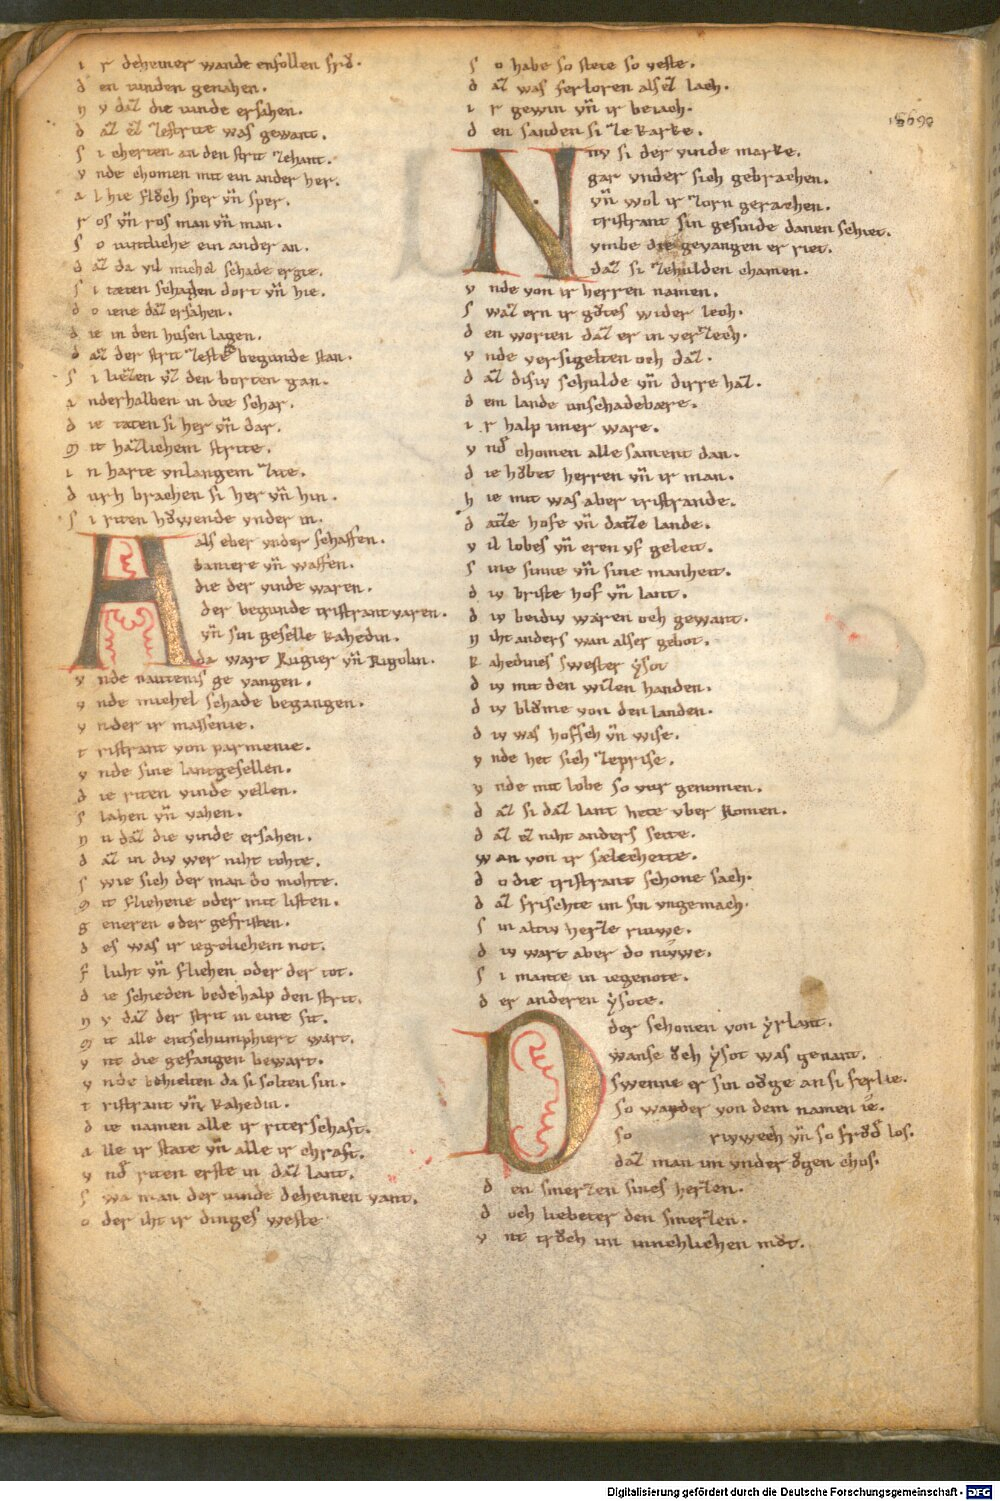 ir deheiner wande enſollen frőd.
den uinden genahen.
ny daz die uinde erſahen.
daz ez zeſtrite was gewant.
ſi cherten an den ſtrit zehant.
vnde chomen mit ein ander her.
alhie flőch ſper vn̄ ſper.
ros vn̄ ros man vn̄ man.
ſo uintliche ein ander an.
daz da vil michel ſchade ergie.
ſi tæten ſchaden dort vn̄ hie.
do iene daz erſahen.
die in den huſen lagen.
daz der ſtrit zeſteте begunde ſtan.
ſi liezen vz den borten gan.
anderhalben in die ſchar.
die taten ſi her vn̄ dar.
mit hazlichem ſtrite.
in harte vnlangem zite.
durh brachen ſi her vn̄ hin.
ſi riten hőwende vnder in.
Alſ eber vnder ſchaffen.
baniere vn̄ waffen.
die der vinde waren.
der begunde triſtrant varen.
vn̄ ſin geſelle Kahedin.
da wart Rugier vn̄ Rigolin.
vnde nautenis ge vangen.
vnde michel ſchade begangen.
vnder ir maſſenie.
triſtrant von parmenie.
vnde ſine lantgeſellen.
die riten vinde vellen.
ſlahen vn̄ vahen.
nu daz die vinde erſahen.
daz in div wer niht tohte.
ſwie ſich der man do mohte.
mit fliehene oder mit liſten.
generen oder gefriſten.
des was ir iegelichem not.
fluht vn̄ fliehen oder der tot.
die ſchieden bedehalp den ſtrit.
ny daz der ſtrit in eine ſit.
mit alle entſchumphiert wart.
vnt die gefangen bewart.
vnde behielten da ſi ſolten ſin.
triſtrant vn̄ Kahedin.
die namen alle ir riterſchaft.
alle ir ſtate vn̄ alle ir chraft.
vnd riten erſte in daz lant.
ſwa man der uinde deheinen vant.
oder iht ir dinges weſte
ſo habe ſo ſtete ſo veſte.
daz was ferloren alſez lach.
ir gewin vn̄ ir beiach.
den ſanden ſi ze Karke.
Nny ſi der vinde marke.
gar vnder ſich gebrachen.
vn̄ wol ir zorn gerachen.
triſtrant ſin geſinde danen ſchiet.
vmbe die gevangen er riet.
daz ſi zehulden chamen.
vnde von ir herren namen.
ſwaz ern ir gőtes wider lech.
den worten daz er in verzech.
vnde verſigelten och daz.
daz diſiv ſchulde vn̄ dirre haz.
dem lande unſchadebære.
ir halp imer ware.
vnd chomen alle ſament dan.
die hőbet herren vn̄ ir man.
hie mit was aber triſtrande.
datze hofe vn̄ datze lande.
vil lobes vn̄ eren vf geleit.
ſine ſinne vn̄ ſine manheit.
div briſte hof vn̄ lant.
div beidiv waren och gewant.
niht anders wan alſer gebot.
Kahedines sweſter ẏſot
div mit den wizen handen.
div blőme von den landen.
div was hofſch vn̄ wiſe.
vnde het ſich zepriſe.
vnde mit lobe ſo vur genomen.
daz ſi daz lant hete vber komen.
daz ez niht anders ſeite.
wan von ir ſælecheite.
do die triſtrant ſchone ſach.
daz friſchte im ſin vngemach.
ſin altiv herze riuwe.
div wart aber do niv̓we.
ſi mante in iegenote.
der anderen ẏſote.
Der ſchonen von ẏrlant.
wanſe őch ẏſot was genant.
ſwenne er ſin oőge an ſi ferlie.
ſo warder von dem namen ie.
ſo rivwech vn̄ ſo frőd los.
daz man im vnder őgen chos.
den ſmerzen ſines herzen.
doch liebeter den ſmerzen.
vnt trőch im innchlichen mőt.
Digitalisierung gefördert durch die Deutsche Forschungsgemeinschaft - DFG